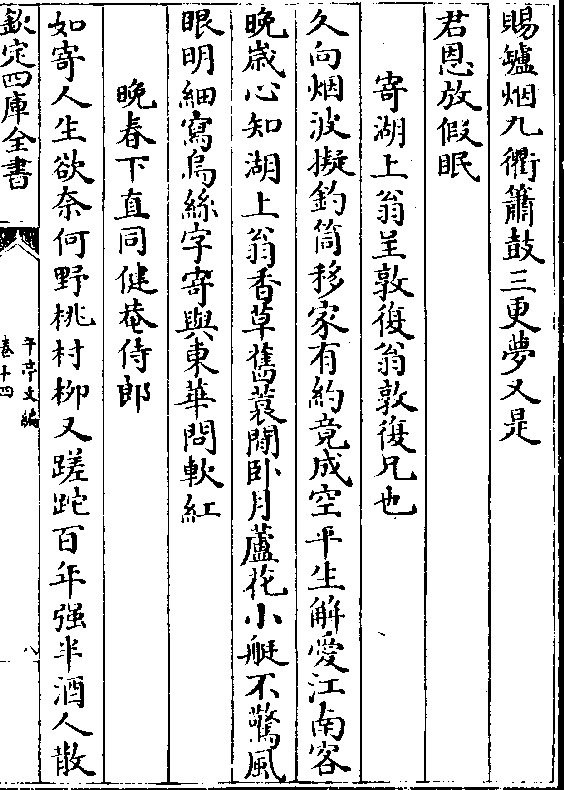 賜罏烟九衢簫鼓三更夢又是
君恩放假眠
寄湖上翁呈敦復翁敦復兄也
久向烟波擬釣筒移家有約竟成空平生解愛江南客
晚歲心知湖上翁香草舊蓑閒卧月蘆花小艇不驚風
眼明細寫烏絲字寄與東華問軟紅
晚春下直同健菴侍郎
如寄人生欲奈何野桃村柳又蹉跎百年强半酒人散
欽定四庫全書
午亭文編
卷十四
八